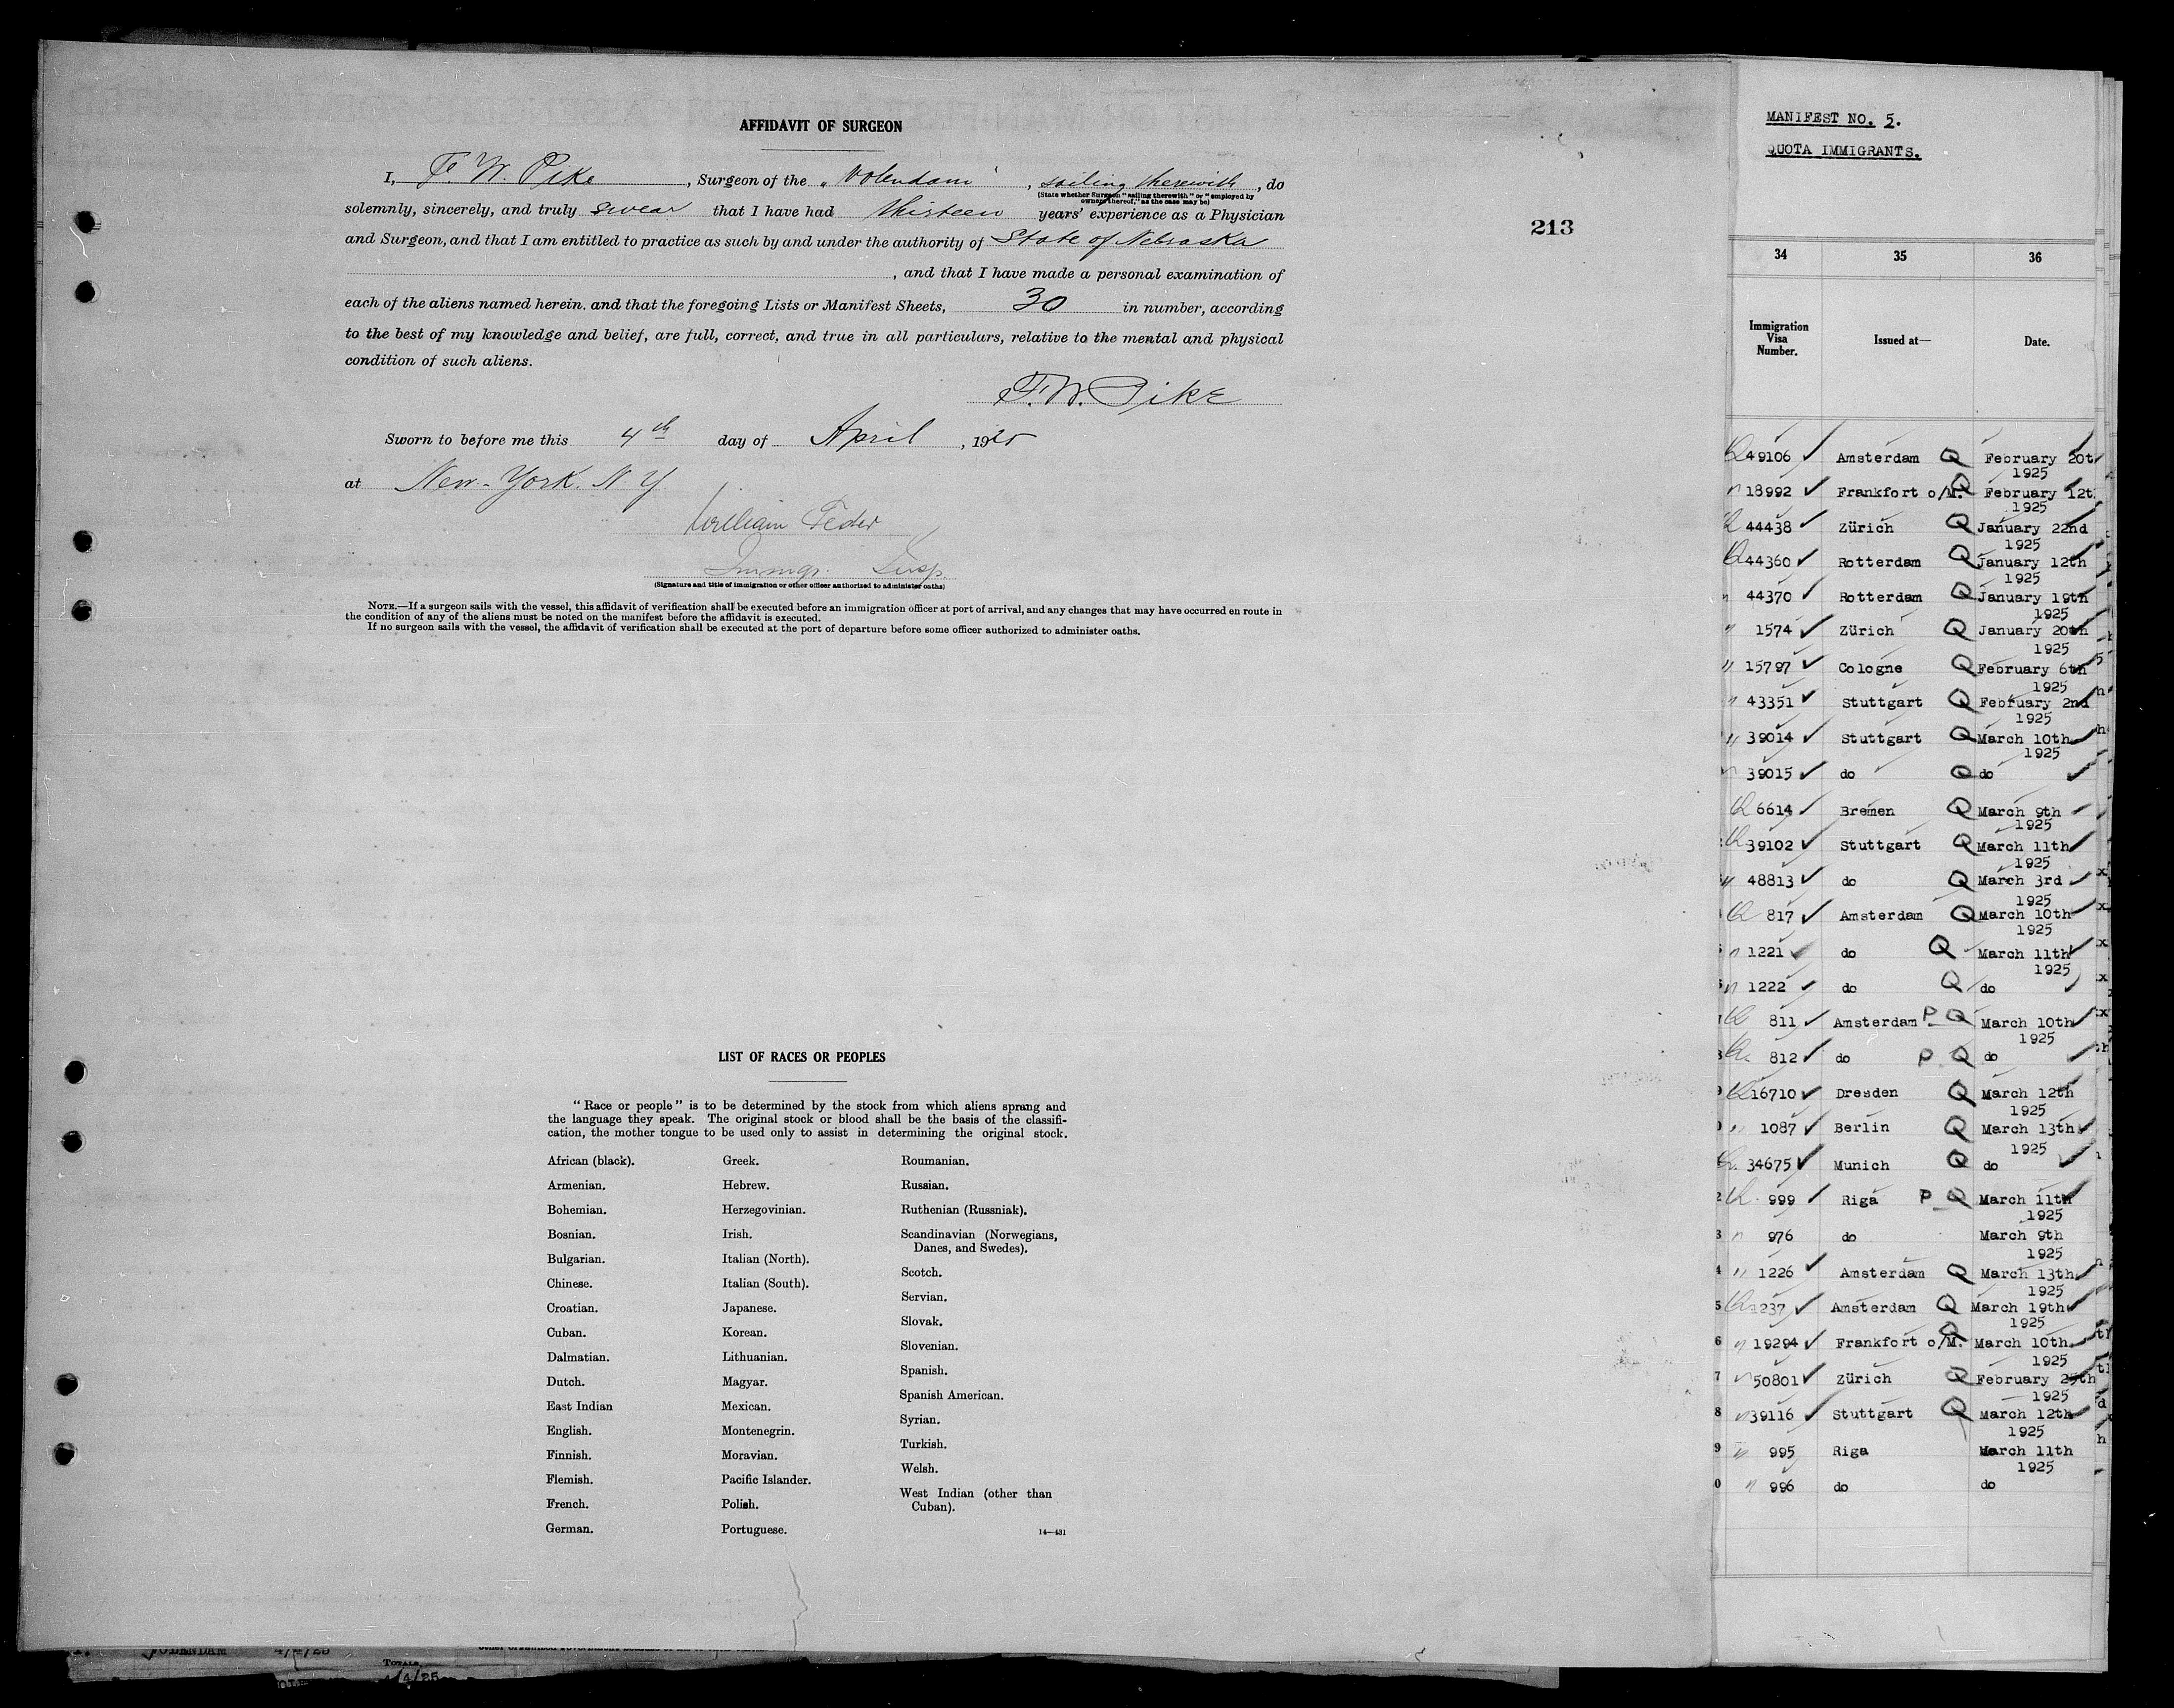 AFFIDAVIT OF SURGEON
I, F. W. Pike, Surgeon of the „Volendam", sailing therewith, do
(State whether Surgeon "sailing therewith" or "employed by
owners thereof," as the case may be)
solemnly, sincerely, and truly swear that I have had thirteen years' experience as a Physician
and Surgeon, and that I am entitled to practice as such by and under the authority of State of Nebraska
, and that I have made a personal examination of
each of the aliens named herein. and that the foregoing Lists or Manifest Sheets, 30 in number, according
to the best of my knowledge and belief, are full, correct, and true in all particulars, relative to the mental and physical
condition of such aliens.
F. W. Pike
Sworn to before me this 4th day of April, 1925
at New-York. N Y
William
Immgr. Insp.
(Signature and title of immigration or other officer authorized to administer oaths)
NOTE.—If a surgeon sails with the vessel, this affidavit of verification shall be executed before an immigration officer at port of arrival, and any changes that may have occurred en route in
the condition of any of the aliens must be noted on the manifest before the affidavit is executed.
If no surgeon sails with the vessel, the affidavit of verification shall be executed at the port of departure before some officer authorized to administer oaths.
213
LIST OF RACES OR PEOPLES
"Race or people" is to be determined by the stock from which aliens sprang and
the language they speak. The original stock or blood shall be the basis of the classifi-
cation, the mother tongue to be used only to assist in determining the original stock.
African (black).
Armenian.
Bohemian.
Bosnian.
Bulgarian.
Chinese.
Croatian.
Cuban.
Dalmatian.
Dutch.
East Indian
English.
Finnish.
Flemish.
French.
German.
Greek.
Hebrew.
Herzegovinian.
Irish.
Italian (North).
Italian (South).
Japanese.
Korean.
Lithuanian.
Magyar.
Mexican.
Montenegrin.
Moravian.
Pacific Islander.
Polish.
Portuguese.
Roumanian.
Russian.
Ruthenian (Russniak).
Scandinavian (Norwegians,
Danes, and Swedes).
Scotch.
Servian.
Slovak.
Slovenian.
Spanish.
Spanish American.
Syrian.
Turkish.
Welsh.
West Indian (other than
Cuban).
14—431
MANIFEST NO. 5.
QUOTA IMMIGRANTS.
34 35 36
Immigration Visa Number. Issued at— Date.
Q 49106 Amsterdam Q February 20t
1925
" 18992 Frankfort o/M. Q February 12t
1925
Q 44438 Zürich Q January 22nd
1925
Q 44360 Rotterdam Q January 12th
1925
" 44370 Rotterdam Q January 19th
1925
" 1574 Zürich Q January 20th
1925
" 15797 Cologne Q February 6th
1925
" 43351 Stuttgart Q February 2nd
1925
" 39014 Stuttgart Q March 10th
1925
" 39015 do Q do
Q 6614 Bremen Q March 9th
1925
Q 39102 Stuttgart Q March 11th
1925
" 48813 do Q March 3rd
1925
Q 817 Amsterdam Q March 10th
1925
" 1221 do Q March 11th
1925
" 1222 do Q do
Q 811 Amsterdam P Q March 10th
1925
Q 812 do P Q do
Q 16710 Dresden Q March 12th
1925
" 1087 Berlin Q March 13th
1925
Q 34675 Munich Q do
Q 999 Riga P Q March 11th
1925
" 976 do March 9th
1925
" 1226 Amsterdam Q March 13th
1925
Q 1237 Amsterdam Q March 19th
1925
" 19294 Frankfort o/M. Q March 10th
1925
" 50801 Zürich Q February 25th
1925
" 39116 Stuttgart Q March 12th
1925
" 995 Riga March 11th
1925
" 996 do do
VOLENDAM 4/4/25
TOTALS
4/4/25